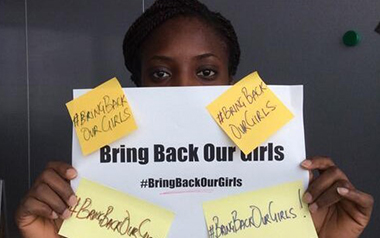 #BRINGBACK
OUR GIRLS
#BRINGBACK
OUR GIRLS
Bring Back Our Girls
#BringBackOurGirls
#BRINGBACKOURGIRLS
#BRINGBACKOURGIRLS!